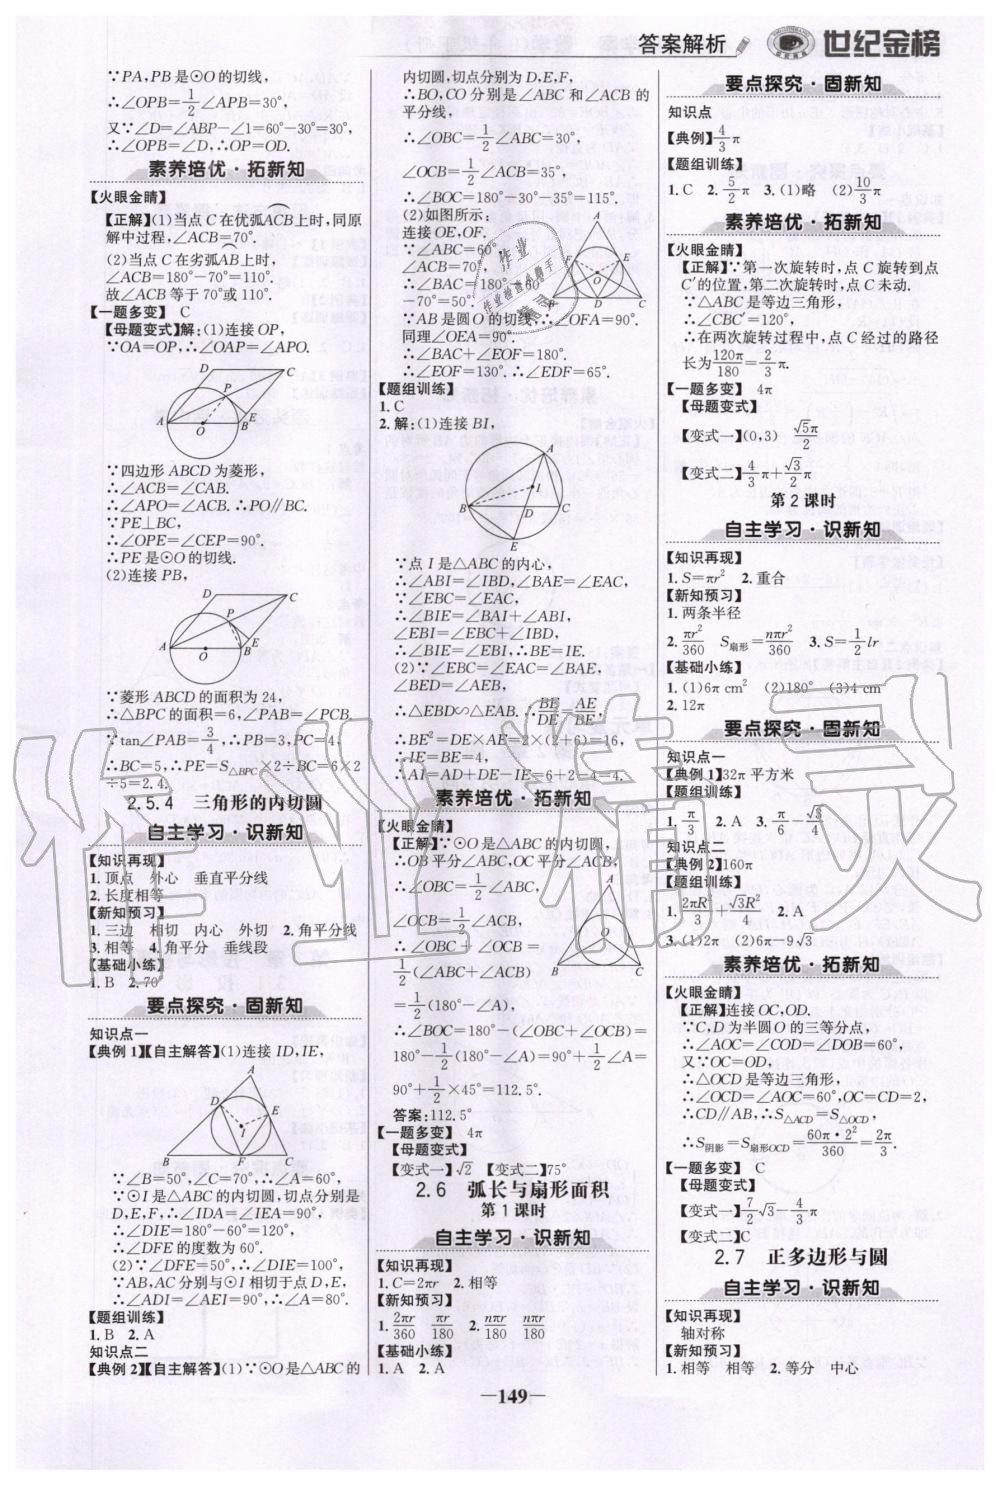 答案解析 世纪金榜
∵PA,PB是⊙O的切线,
∴∠OPB=1/2∠APB=30°,
又∵∠D=∠ABP-∠1=60°-30°=30°,
∴∠OPB=∠D,∴OP=OD.
素养培优·拓新知
【火眼金睛】
【正解】(1)当点C在优弧ACB上时,同原
解中过程,∠ACB=70°.
(2)当点C在劣弧AB上时,
∠ACB=180°-70°=110°.
故∠ACB等于70°或110°.
【一题多变】 C
【母题变式】解:(1)连接OP,
∵OA=OP,∴∠OAP=∠APO.
D C P A O B E
∵四边形ABCD为菱形,
∴∠ACB=∠CAB.
∴∠APO=∠ACB.∴PO∥BC.
∵PE⊥BC,
∴∠OPE=∠CEP=90°.
∴PE是⊙O的切线.
(2)连接PB,
D C P A O B E
∵菱形ABCD的面积为24,
∴△BPC的面积=6,∠PAB=∠PCB.
∵tan∠PAB=3/4,∴PB=3,PC=4,
∴BC=5,∴PE=S△BPC×2÷BC=6×2
÷5=2.4.
2.5.4 三角形的内切圆
自主学习·识新知
【知识再现】
1.顶点 外心 垂直平分线
2.长度相等
【新知预习】
1.三边 相切 内心 外切 2.角平分线
3.相等 4.角平分 垂线段
【基础小练】
1.B 2.70°
要点探究·固新知
知识点一
【典例1】【自主解答】(1)连接ID,IE,
A D E I B F C
∵∠B=50°,∠C=70°,∴∠A=60°,
∵⊙I是△ABC的内切圆,切点分别是
D,E,F,∴∠IDA=∠IEA=90°,
∴∠DIE=180°-60°=120°,
∴∠DFE的度数为60°.
(2)∵∠DFE=50°,∴∠DIE=100°,
∵AB,AC分别与⊙I相切于点D,E,
∴∠ADI=∠AEI=90°,∴∠A=80°.
【题组训练】
1.B 2.A
知识点二
【典例2】【自主解答】(1)∵⊙O是△ABC的
内切圆,切点分别为D,E,F,
∴BO,CO分别是∠ABC和∠ACB的
平分线,
∴∠OBC=1/2∠ABC=30°.
∠OCB=1/2∠ACB=35°,
∴∠BOC=180°-30°-35°=115°.
(2)如图所示:
连接OE,OF.
∵∠ABC=60°,
∠ACB=70°,
∴∠BAC=180°-60°
-70°=50°.
∵AB是圆O的切线,∴∠OFA=90°.
同理∠OEA=90°.
∴∠BAC+∠EOF=180°.
∴∠EOF=130°.∴∠EDF=65°.
A F E O B D C
【题组训练】
1.C
2.解:(1)连接BI,
A I B D C E
∵点I是△ABC的内心,
∴∠ABI=∠IBD,∠BAE=∠EAC,
∵∠EBC=∠EAC,
∴∠BIE=∠BAI+∠ABI,
∠EBI=∠EBC+∠IBD,
∴∠BIE=∠EBI,∴BE=IE.
(2)∵∠EBC=∠EAC=∠BAE,
∠BED=∠AEB,
∴△EBD∽△EAB.∴BE/DE=AE/BE,
∴BE²=DE×AE=2×(2+6)=16,
∴IE=BE=4,
∴AI=AD+DE-IE=6+2-4=4.
素养培优·拓新知
【火眼金睛】
【正解】∵⊙O是△ABC的内切圆,
∴OB平分∠ABC,OC平分∠ACB,
∴∠OBC=1/2∠ABC,
∠OCB=1/2∠ACB,
∴∠OBC+∠OCB=
1/2(∠ABC+∠ACB)
=1/2(180°-∠A),
∴∠BOC=180°-(∠OBC+∠OCB)=
180°-1/2(180°-∠A)=90°+1/2∠A=
90°+1/2×45°=112.5°.
答案:112.5°
A O B C
【一题多变】 4π
【母题变式】
【变式一】√2 【变式二】75°
2.6 弧长与扇形面积
第1课时
自主学习·识新知
【知识再现】
1.C=2πr 2.相等
【新知预习】
1.2πr/360 πr/180 2.nπr/180 nπr/180
【基础小练】
1.A 2.A
要点探究·固新知
知识点
【典例】4/3π
【题组训练】
1.C 2.5/2π 3.(1)略 (2)10/3π
素养培优·拓新知
【火眼金睛】
【正解】∵第一次旋转时,点C旋转到点
C′的位置,第二次旋转时,点C未动.
∵△ABC是等边三角形,
∴∠CBC′=120°,
∴在两次旋转过程中,点C经过的路径
长为120π/180=2/3π.
【一题多变】 4π
【母题变式】
【变式一】(0,3) √5/2π
【变式二】4/3π+√3/2π
第2课时
自主学习·识新知
【知识再现】
1.S=πr² 2.重合
【新知预习】
1.两条半径
2.πr²/360 S扇形=nπr²/360 3.S=1/2lr
【基础小练】
1.(1)6π cm² (2)180° (3)4 cm
2.12π
要点探究·固新知
知识点一
【典例1】32π平方米
【题组训练】
1.π/3 2.A 3.π/6-√3/4
知识点二
【典例2】160π
【题组训练】
1.2πR²/3+√3R²/4 2.A
3.(1)2π (2)6π-9√3
素养培优·拓新知
【火眼金睛】
【正解】连接OC,OD.
∵C,D为半圆O的三等分点,
∴∠AOC=∠COD=∠DOB=60°,
又∵OC=OD,
∴△OCD是等边三角形,
∴∠OCD=∠AOC=60°,OC=CD=2,
∴CD∥AB,∴S△ACD=S△OCD,
∴S阴影=S扇形OCD=60π·2²/360=2π/3.
【一题多变】 C
【母题变式】
【变式一】7/2√3-4/3π
【变式二】C
2.7 正多边形与圆
自主学习·识新知
【知识再现】
轴对称
【新知预习】
1.相等 相等 2.等分 中心
—149—
作业精灵